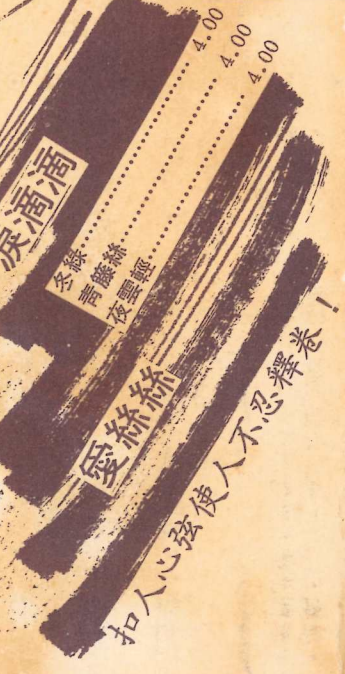 淚滴滴
冬綠……………………4.00
青藤絲……………………4.00
夜雲輕……………………4.00
愛絲絲
扣人心弦使人不忍釋卷！